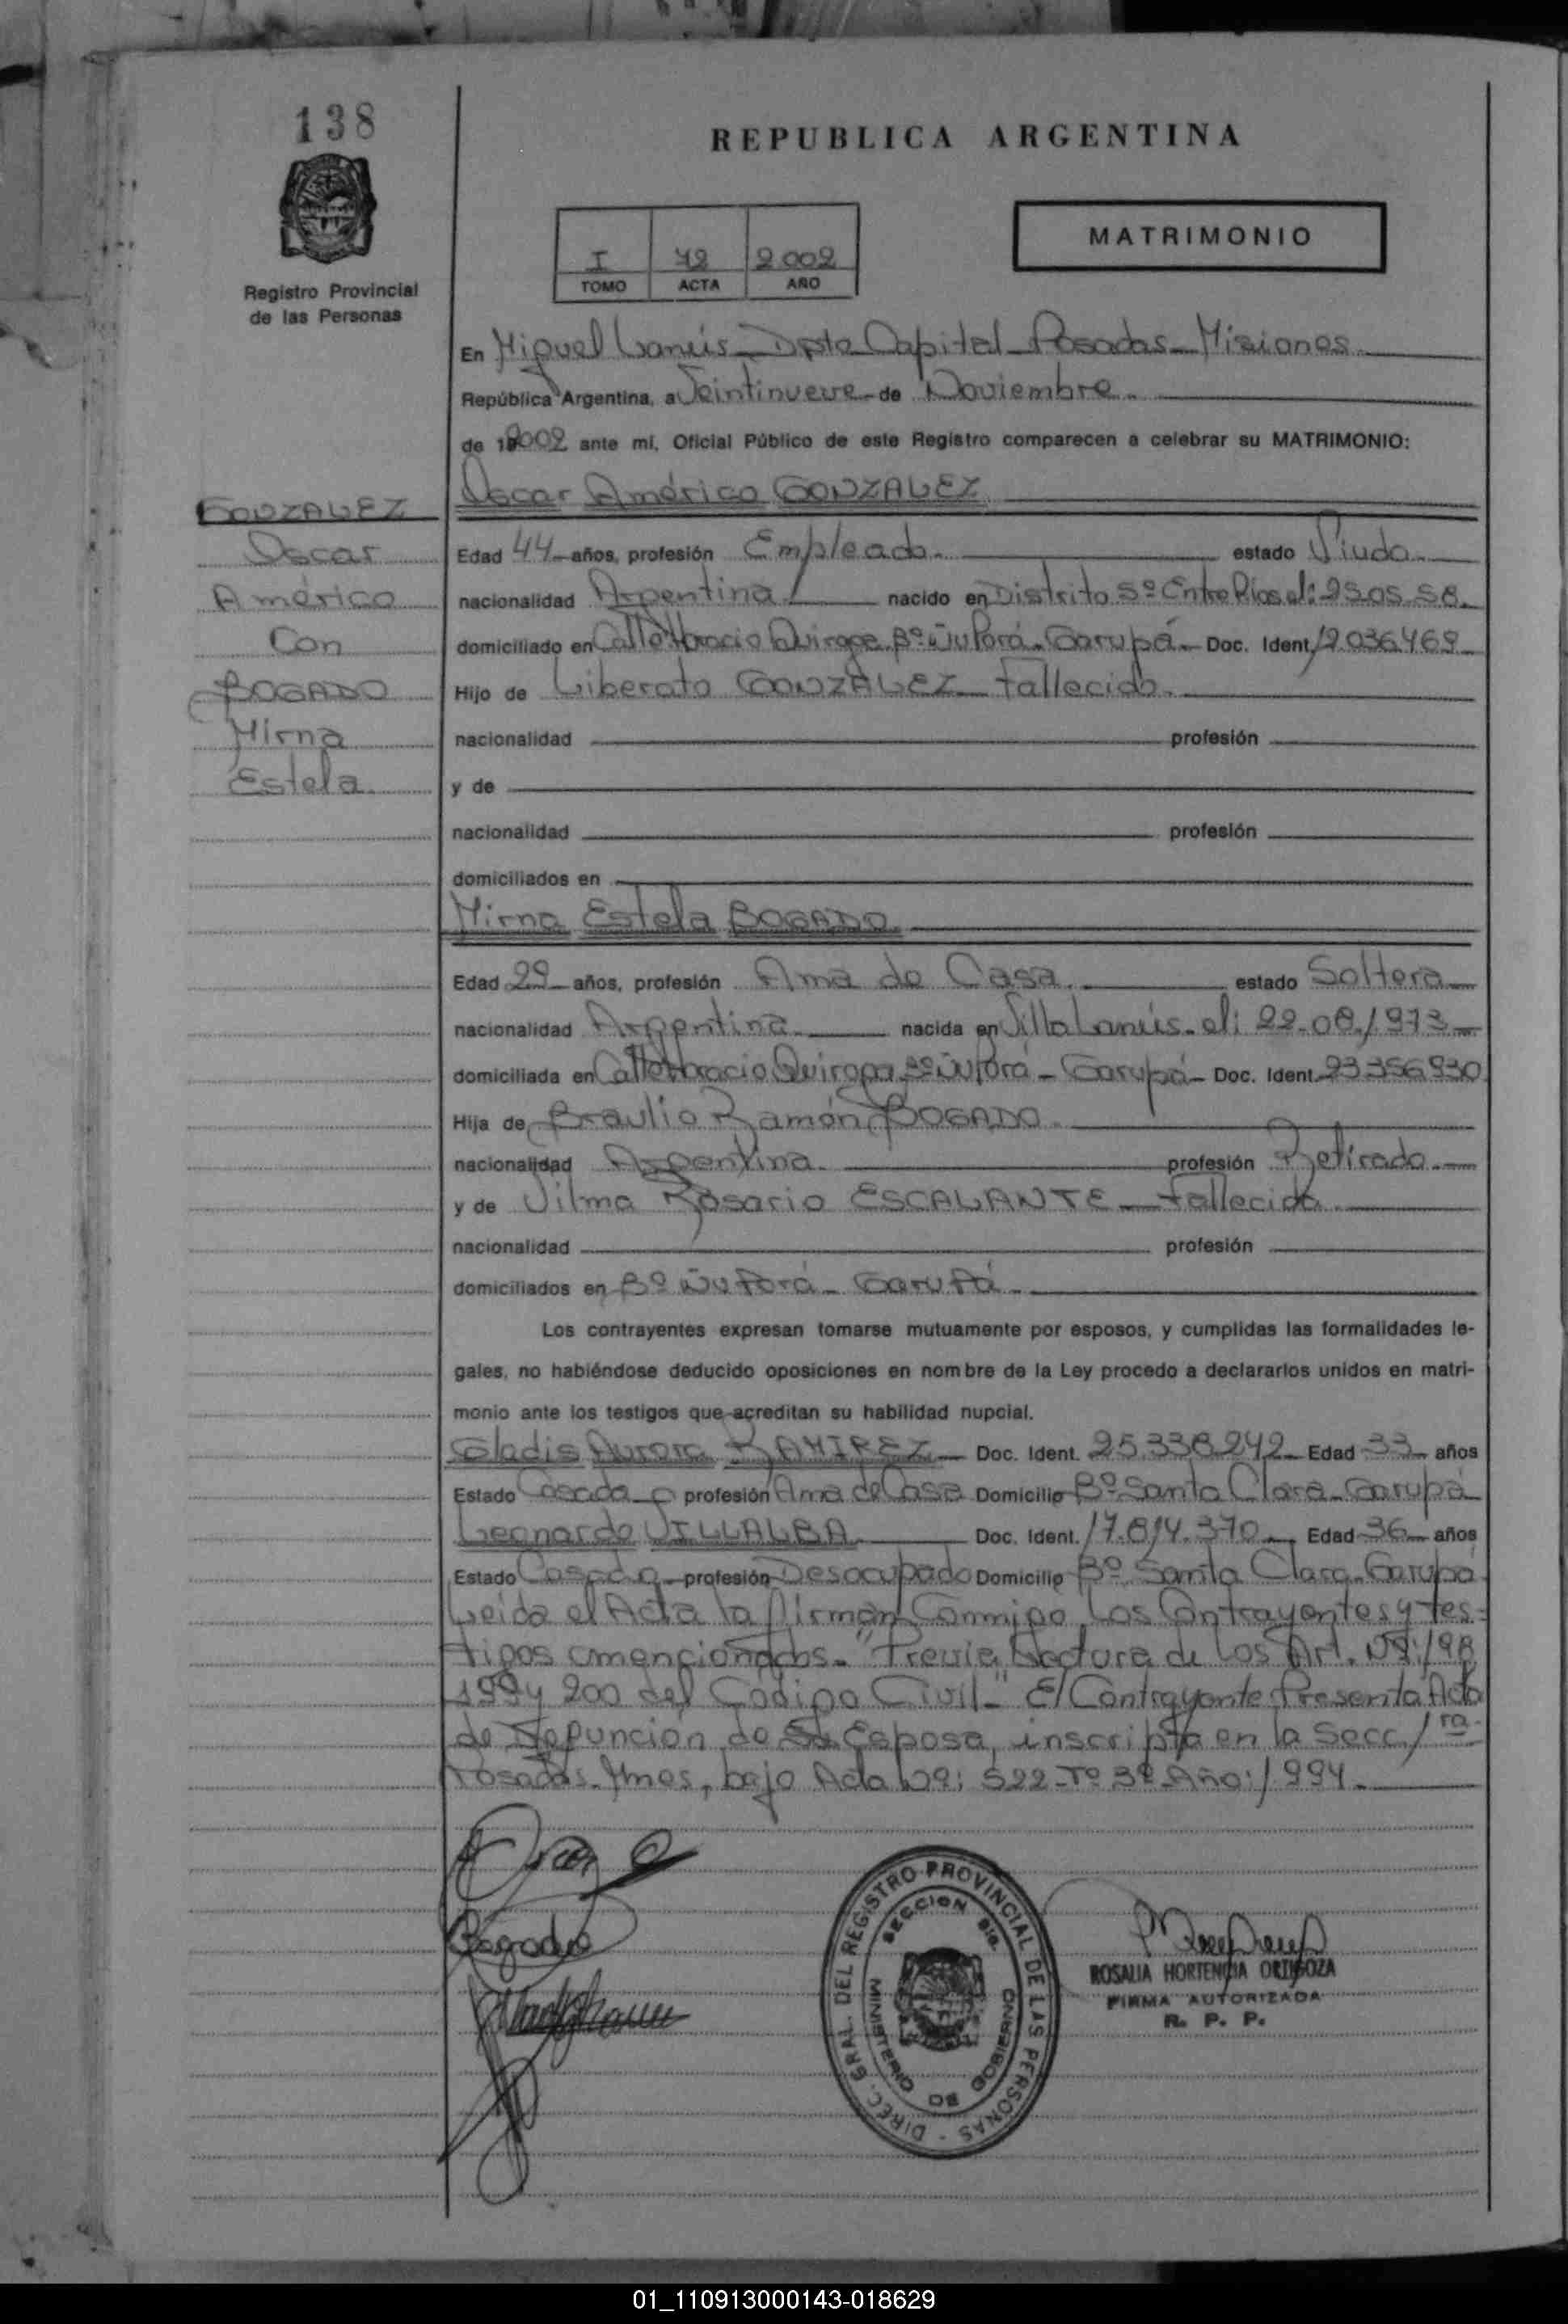 138
REPUBLICA ARGENTINA
MATRIMONIO
I 42 2002
TOMO ACTA AÑO
Registro Provincial
de las Personas
En Miguel Lanús - Dpto Capital - Posadas - Misiones
República Argentina, a Veintinueve de Noviembre
de 2002 ante mí, Oficial Público de este Registro comparecen a celebrar su MATRIMONIO:
Oscar Américo GONZALEZ
GONZALEZ
Oscar
Américo
Con
BOGADO
Mirna
Estela
Edad 44 años, profesión Empleado. estado Viudo
nacionalidad Argentina nacido en Distrito 5º Entre Ríos el: 25.05.58.
domiciliado en Calle Horacio Quiroga Bº Ñu Porá - Garupá - Doc. Ident. 12.036.469
Hijo de Liberato GONZALEZ - Fallecido.
nacionalidad profesión
y de
nacionalidad profesión
domiciliados en
Mirna Estela BOGADO
Edad 29 años, profesión Ama de Casa. estado Soltera
nacionalidad Argentina nacida en Villa Lanús - el: 22-08-1973
domiciliada en Calle Horacio Quiroga Bº Ñu Porá - Garupá - Doc. Ident. 23.356.930
Hija de Braulio Ramón BOGADO.
nacionalidad Argentina profesión Retirado
y de Vilma Rosario ESCALANTE - Fallecida
nacionalidad profesión
domiciliados en Bº Ñu Porá - Garupá
Los contrayentes expresan tomarse mutuamente por esposos, y cumplidas las formalidades le-
gales, no habiéndose deducido oposiciones en nombre de la Ley procedo a declararlos unidos en matri-
monio ante los testigos que acreditan su habilidad nupcial.
Gladis Aurora RAMIREZ - Doc. Ident. 25.338.242 Edad 33 años
Estado Casada profesión Ama de Casa Domicilio Bº Santa Clara - Garupá
Leonardo VILLALBA Doc. Ident. 17.814.370 Edad 36 años
Estado Casado profesión Desocupado Domicilio Bº Santa Clara - Garupá
Leida el Acta la firman Conmigo, Los Contrayentes y tes-
tigos mencionados. "Previa Lectura de Los Art. Nº: 198
199 y 200 del Codigo Civil" El Contrayente Presenta Acta
de Defuncion de Su Esposa, inscripta en la Secc. 1ra
Posadas - Mnes, bajo Acta Nº: 522 - Tº 3º - Año: 1994.
Bogado
DIREC. GRAL. DEL REGISTRO PROVINCIAL DE LAS PERSONAS
SECCION
MINISTERIO DE GOBIERNO
ROSALIA HORTENCIA ORTIGOZA
FIRMA AUTORIZADA
R. P. P.
01_110913000143-018629